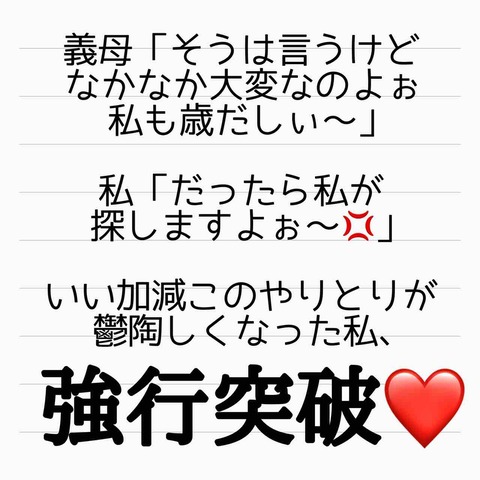 義母「そうは言うけど
なかなか大変なのよぉ
私も歳だしぃ〜」
私「だったら私が
探しますよぉ〜💢」
いい加減このやりとりが
鬱陶しくなった私、
強行突破❤️